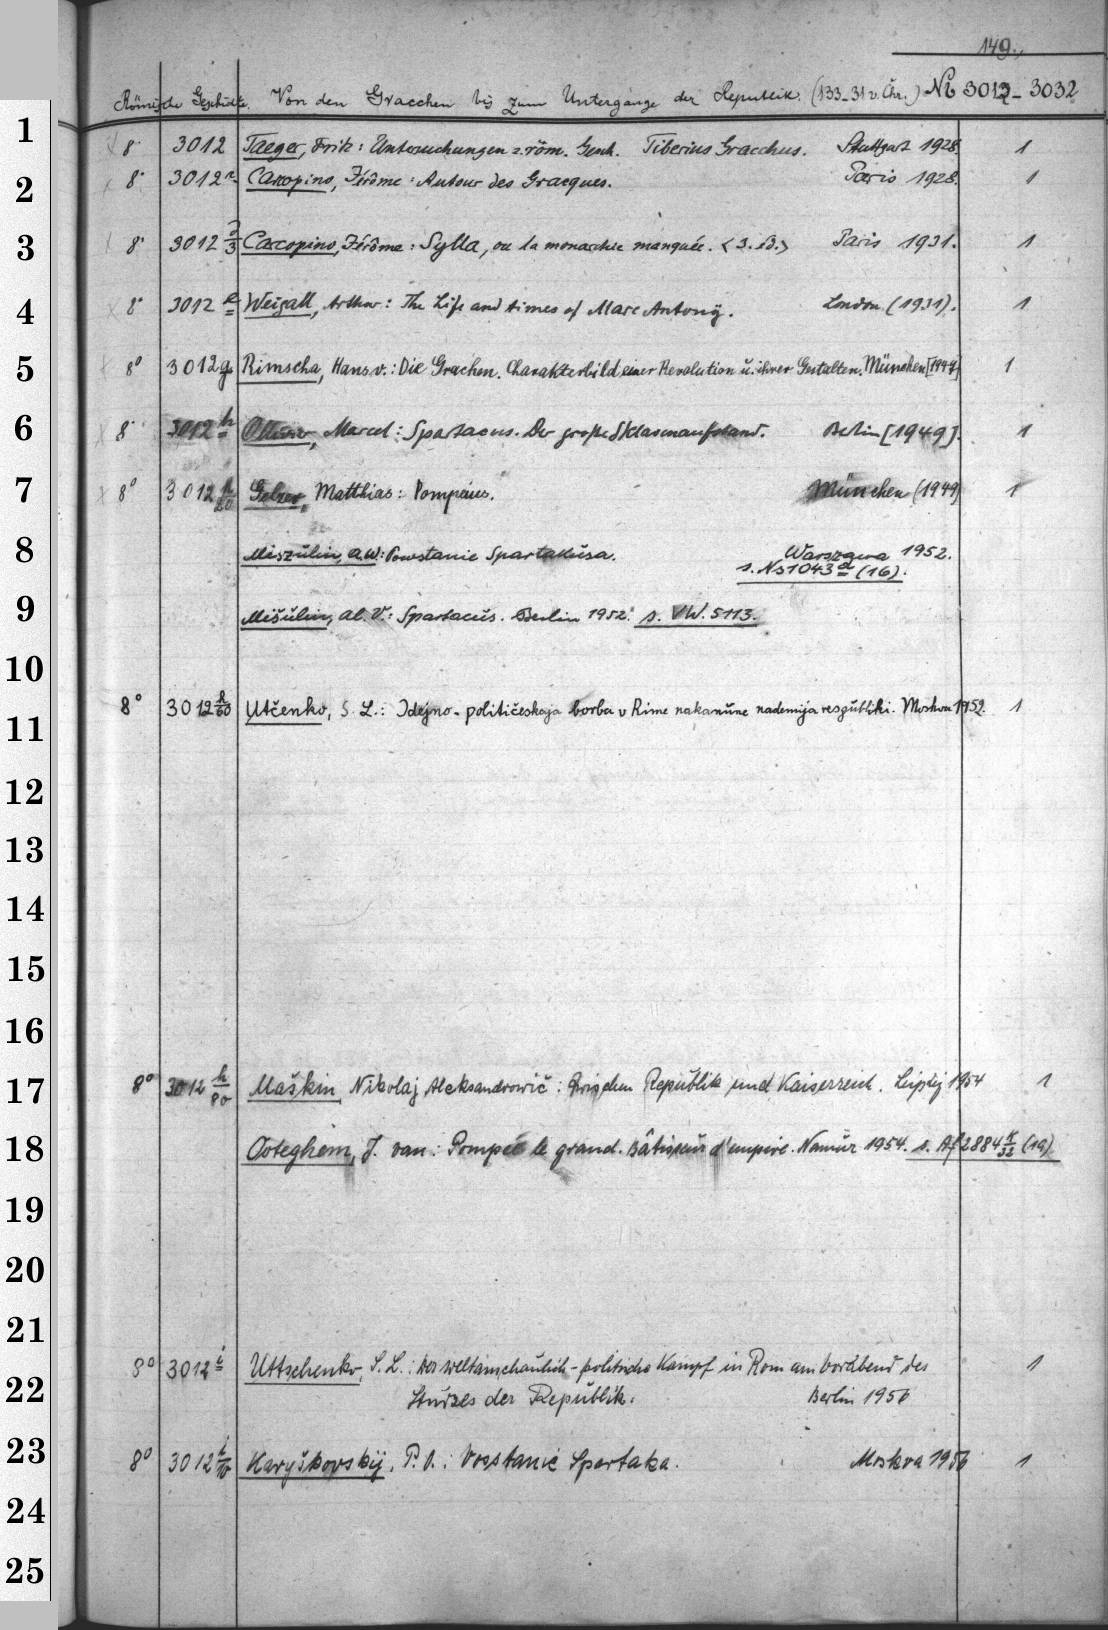 149.
Römische Geschichte. Von den Gracchen bis zum Untergange der Republik. (133-31 v. Chr.) Nb 3012-3032
1
8° 3012 Taeger, Fritz: Untersuchungen z. röm. Gesch. Tiberius Gracchus. Stuttgart 1928. 1
2
8° 3012a Carcopino, Jérôme: Autour des Gracques. Paris 1928. 1
3
8° 3012 Carcopino, Jérôme: Sylla, ou la monarchie manquée. <3. éd.> Paris 1931. 1
4
8° 3012 e Weigall, Arthur: The Life and times of Marc Antony. London (1931). 1
5
8° 3012g Rimscha, Hans v.: Die Grachen. Charakterbild einer Revolution u. ihrer Gestalten. München [1947] 1
6
8° 3012 h Ollivier, Marcel: Spartacus. Der große Sklavenaufstand. Berlin [1949]. 1
7
8° 3012 h/20 Gelzer, Matthias: Pompeius. München (1949) 1
8
Miszulin, A.W: Powstanie Spartakusa. Warszawa 1952.
s. Ns 1043 d (16).
9
Mišulin, Al. V.: Spartacus. Berlin 1952. s. VW. 5113.
10
8° 3012 h/60 Utčenko, S. L.: Idejno-političeskaja borba v Rime nakanune nademija respubliki. Moskva 1952. 1
11
12
13
14
15
16
17
8° 3012 h/80 Maškin, Nikolaj Aleksandrowič: Zwischen Republik und Kaiserreich. Leipzig 1954 1
18
Ooteghem, J. van: Pompée le grand. Bâtisseur d'empire. Namur 1954. s. Af 2884 (19)
19
20
21
22
8° 3012 i Uttschenko, S. L.: Der weltanschaulich-politische Kampf in Rom am Vorabend des 1
Sturzes der Republik. Berlin 1956
23
8° 3012 i/10 Karyškovskij, P. O.: Vosstanie Spartaka. Moskva 1956 1
24
25